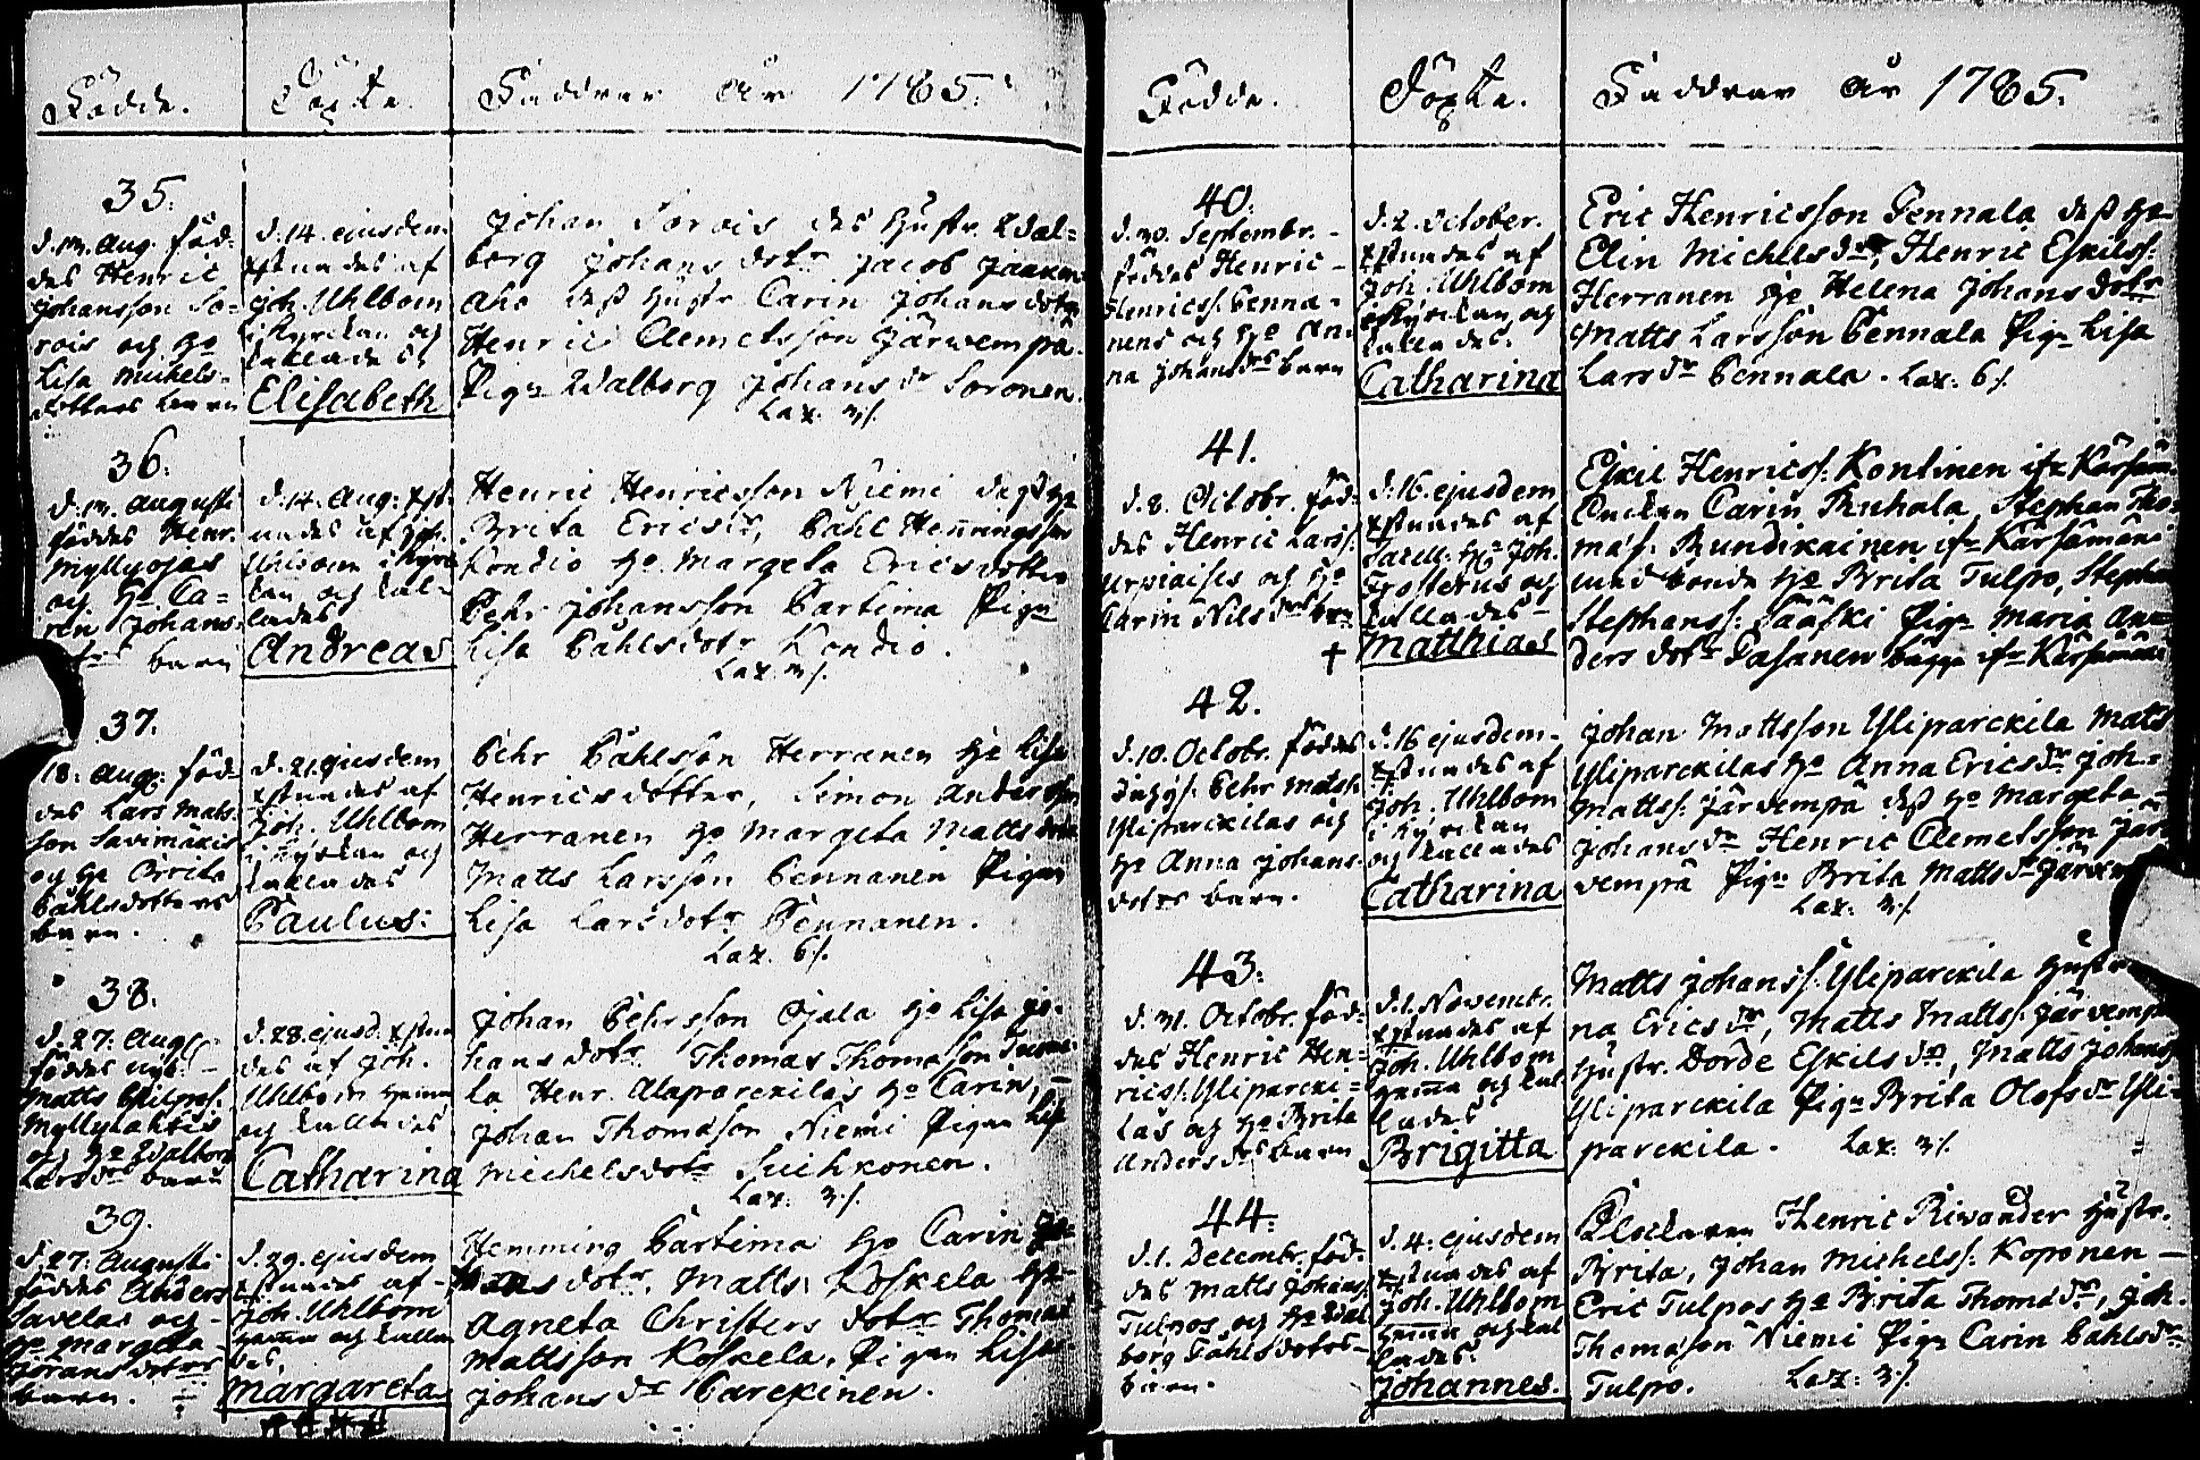 Födde.
Döpte.
Faddrar År 1785.
35.
d. 13. Aug. föd-
des Henric
Johansson So-
rois och H:o
Lisa Michels-
dotters barn
d. 14. ejusdem
Xstnades af
Joh. Uhlbom
i Kyrckan och
kallades
Elisabeth
Johan Sorois des Hustr. Wal-
borg Johans dotr Jacob
aho dess Hustr Carin Johans dotr
Henric Clemetsson Järwempä.
Pig: Walborg Johans dr Soronen.
Lax. 3/.
36.
d. 13. Augusti
föddes Henr.
Myllyojas
och H:o Ca-
rin Johans
barn
d. 14. Aug: Xst-
nades af Joh.
Uhlbom i Kyrc
kan och kal-
lades
Andreas
Henric Henricsson Niemi dess H:o
Brita Ericsdr, Påhl Henningsson
Kondio H:o Margeta Ericsdotter
Pehr Johansson Partima Pigan
Lisa Påhlsdotr Kondio.
Lax. 3/.
37.
18. Aug: föd-
des Lars Mats-
son Savimäkis
och H:o Brita
Påhlsdotters
barn.
d. 21. ejusdem
Xstnades af
Joh. Uhlbom
i Kyrckan och
kallades
Paulus:
Pehr Påhlsson Herranen H:o Lisa
Henricsdotter, Simon Andersson
Herranen H:o Margeta Mattsdotr
Matts Larsson Pennanen Pigan
Lisa Larsdotr Pennanen.
Lax. 6/.
38.
d. 27. Aug:
föddes nyb.
Matts
Myllylahtis
och H:o Walborg
Larsdrs barn
d. 28. ejusd. Xstna
des af Joh.
Uhlbom hemma
och kallades
Catharina
Johan Pehrsson Ojala H:o Lisa Jo-
hans dotr Thomas Thomasson Tuoma-
la Henr. Alaparckilas H:o Carin, -
Johan Thomasson Niemi Pigan Lisa
Michelsdotr Suihkonen.
Lax. 3/.
39.
d. 27. Augusti
föddes Anders
Savelas och
H:o Margeta
Jörans dotrs
barn.
d. 29. ejusdem
Xstnades af
Joh. Uhlbom
hemma och kalla
des,
Margareta
Hemming Partima H:o Carin Jo-
hans dotr. Matts Koskela H:o
Agneta Christers dotr Thomas
Mattsson Koskela, Pigan Lisa
Johans dr Parckinen.
Födde.
Döpte.
Faddrar År 1785.
40.
d. 30. Septembr.
föddes Henric
Henricss. Penna-
nens och H:o An-
na Johansdrs barn
d. 2. October.
Xstnades af
Joh. Uhlbom
i Kyrckan och
kallades.
Catharina
Eric Henricsson Pennala dess H:o
Elin Michelsdr, Henric Eskilss:
Herranen H:o Helena Johans dotr
Matts Larsson Pennala Pig: Lisa
Lars dr Pennala. Lax: 6/.
41.
d. 8. Octobr. föd-
des Henric Larss:
Urpiaises och H:o
Carin Nils drs barn
†
d. 16. ejusdem
Xstnades af
Sacell: Hr Joh.
Frosterus och
kallades
Matthias
Eskil Henricss: Kontinen ifr Kärsäm:
Enckan Carin Ruhala, Stephan Tho-
mass: Rundikainen ifr Kärsämäki
med bonde H:o Brita Tulpo, Stephan
Stephanss: Sääski Pig: Maria An-
ders dotr Pasanen bägge ifr Kärsämäki
42.
d. 10. Octobr. föddes
Inhys: Pehr Matss:
Yliparckilas och
H:o Anna Johans
dotrs barn.
d. 16 ejusdem
Xstnades af
Joh. Uhlbom
i Kyrckan
och kallades
Catharina
Johan Mattsson Yliparckila Matts
Yliparckilas H:o Anna Ericsdr Joh.
Mattss: Järvempä dess H:o Margeta
Johansdr Henric Clemetsson Jär
vempä Pig: Brita Matts dr Järvem
Lax. 3/.
43.
d. 31. Octobr. föd-
des Henric Hen-
ricss. Yliparcki-
las och H:o Brita
Andersdrs barn
d. 1. Novembr.
Xstnades af
Joh. Uhlbom
hemma och kal
lades
Brigitta
Matts Johanss: Yliparckila Hustr
na Ericsdr, Matts Mattss. Järvempä
Hustr. Dorde Eskils dr, Matts Johanss
Yliparckila Pig: Brita Olofs dr Yli-
parckila. Lax. 3/.
44.
d. 1. Decembr. föd-
des Matts Johanss
Tulpos och H:o Wal
borg Påhlsdotrs
barn.
d. 4. ejusdem
Xstnades af
Joh. Uhlbom
hemma och kal
lades.
Johannes.
Klockaren Henric Rivander Hustr.
Brita, Johan Michelss: Koponen -
Eric Tulpos H:o Brita Thoms dr, Joh.
Thomasson Niemi Pig: Carin Påhlsdr
Tulpo. Lax: 3/.